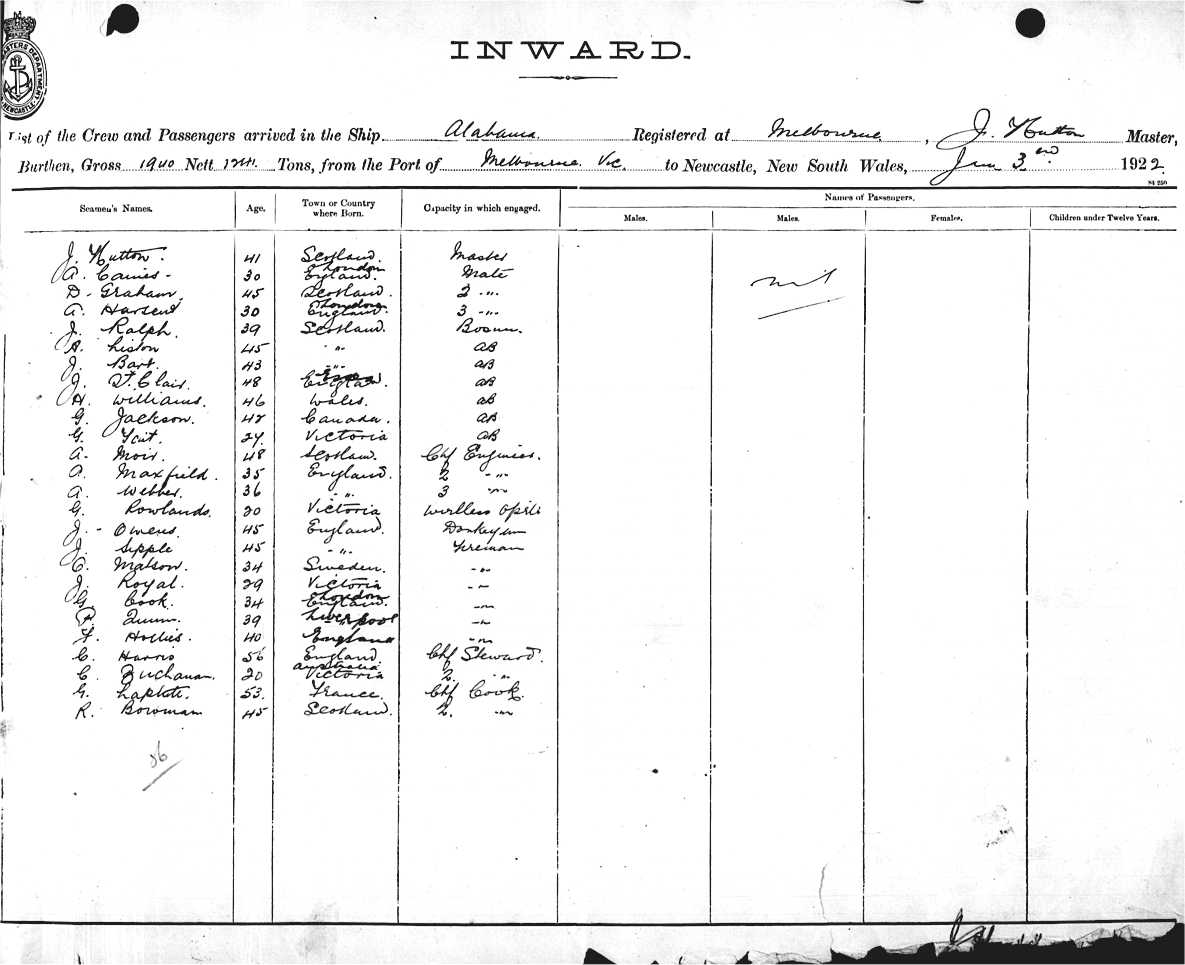 MASTERS DEPARTMENT
NEWCASTLE
INWARD.
List of the Crew and Passengers arrived in the Ship Alabama. Registered at Melbourne, J. Hutton Master,
Burthen, Gross 1940 Nett Tons, from the Port of Melbourne. Vic. to Newcastle, New South Wales, 3rd 1922.
S4 250
Names of Passengers.
Seamen's Names. Age. Town or Country where Born. Capacity in which engaged. Males. Males. Females. Children under Twelve Years.
J. Hutton. 41 Scotland. Master
A. Caines - 30 London England. Mate nil
D - Graham. 45 Scotland. 2 -"-
A. 30 London England. 3 -"-
J. Ralph. 39 Scotland. Bosun.
A. Liston 45 -"- AB
J. Bart. 43 -"- AB
J. St. Clair. 48 England. AB
H. Williams. 46 Wales. AB
G. Jackson. 42 Canada. AB
G. 27. Victoria AB
A. Moir. 48 Scotland. Chf Engineer.
A. Maxfield. 35 England. 2 -"-
A. Webber. 36 -"- 3 -"-
G. Rowlands. 20 Victoria
J. - Owens. 45 England. Donkeyman
J. Sipple 45 -"- Fireman
C. Matson. 34 Sweden. -"-
J. Royal. 29 Victoria -"-
G. Cook. 34 London England. -"-
P. Quinn. 39 Liverpool -"-
F. Hollies. 40 England -"-
C. Harris 56 England Chf Steward.
C. Buchanan. 20 Australia Victoria 2. -"-
G. 53. France. Chf Cook.
R. Bowman 45 Scotland. 2. -"-
26